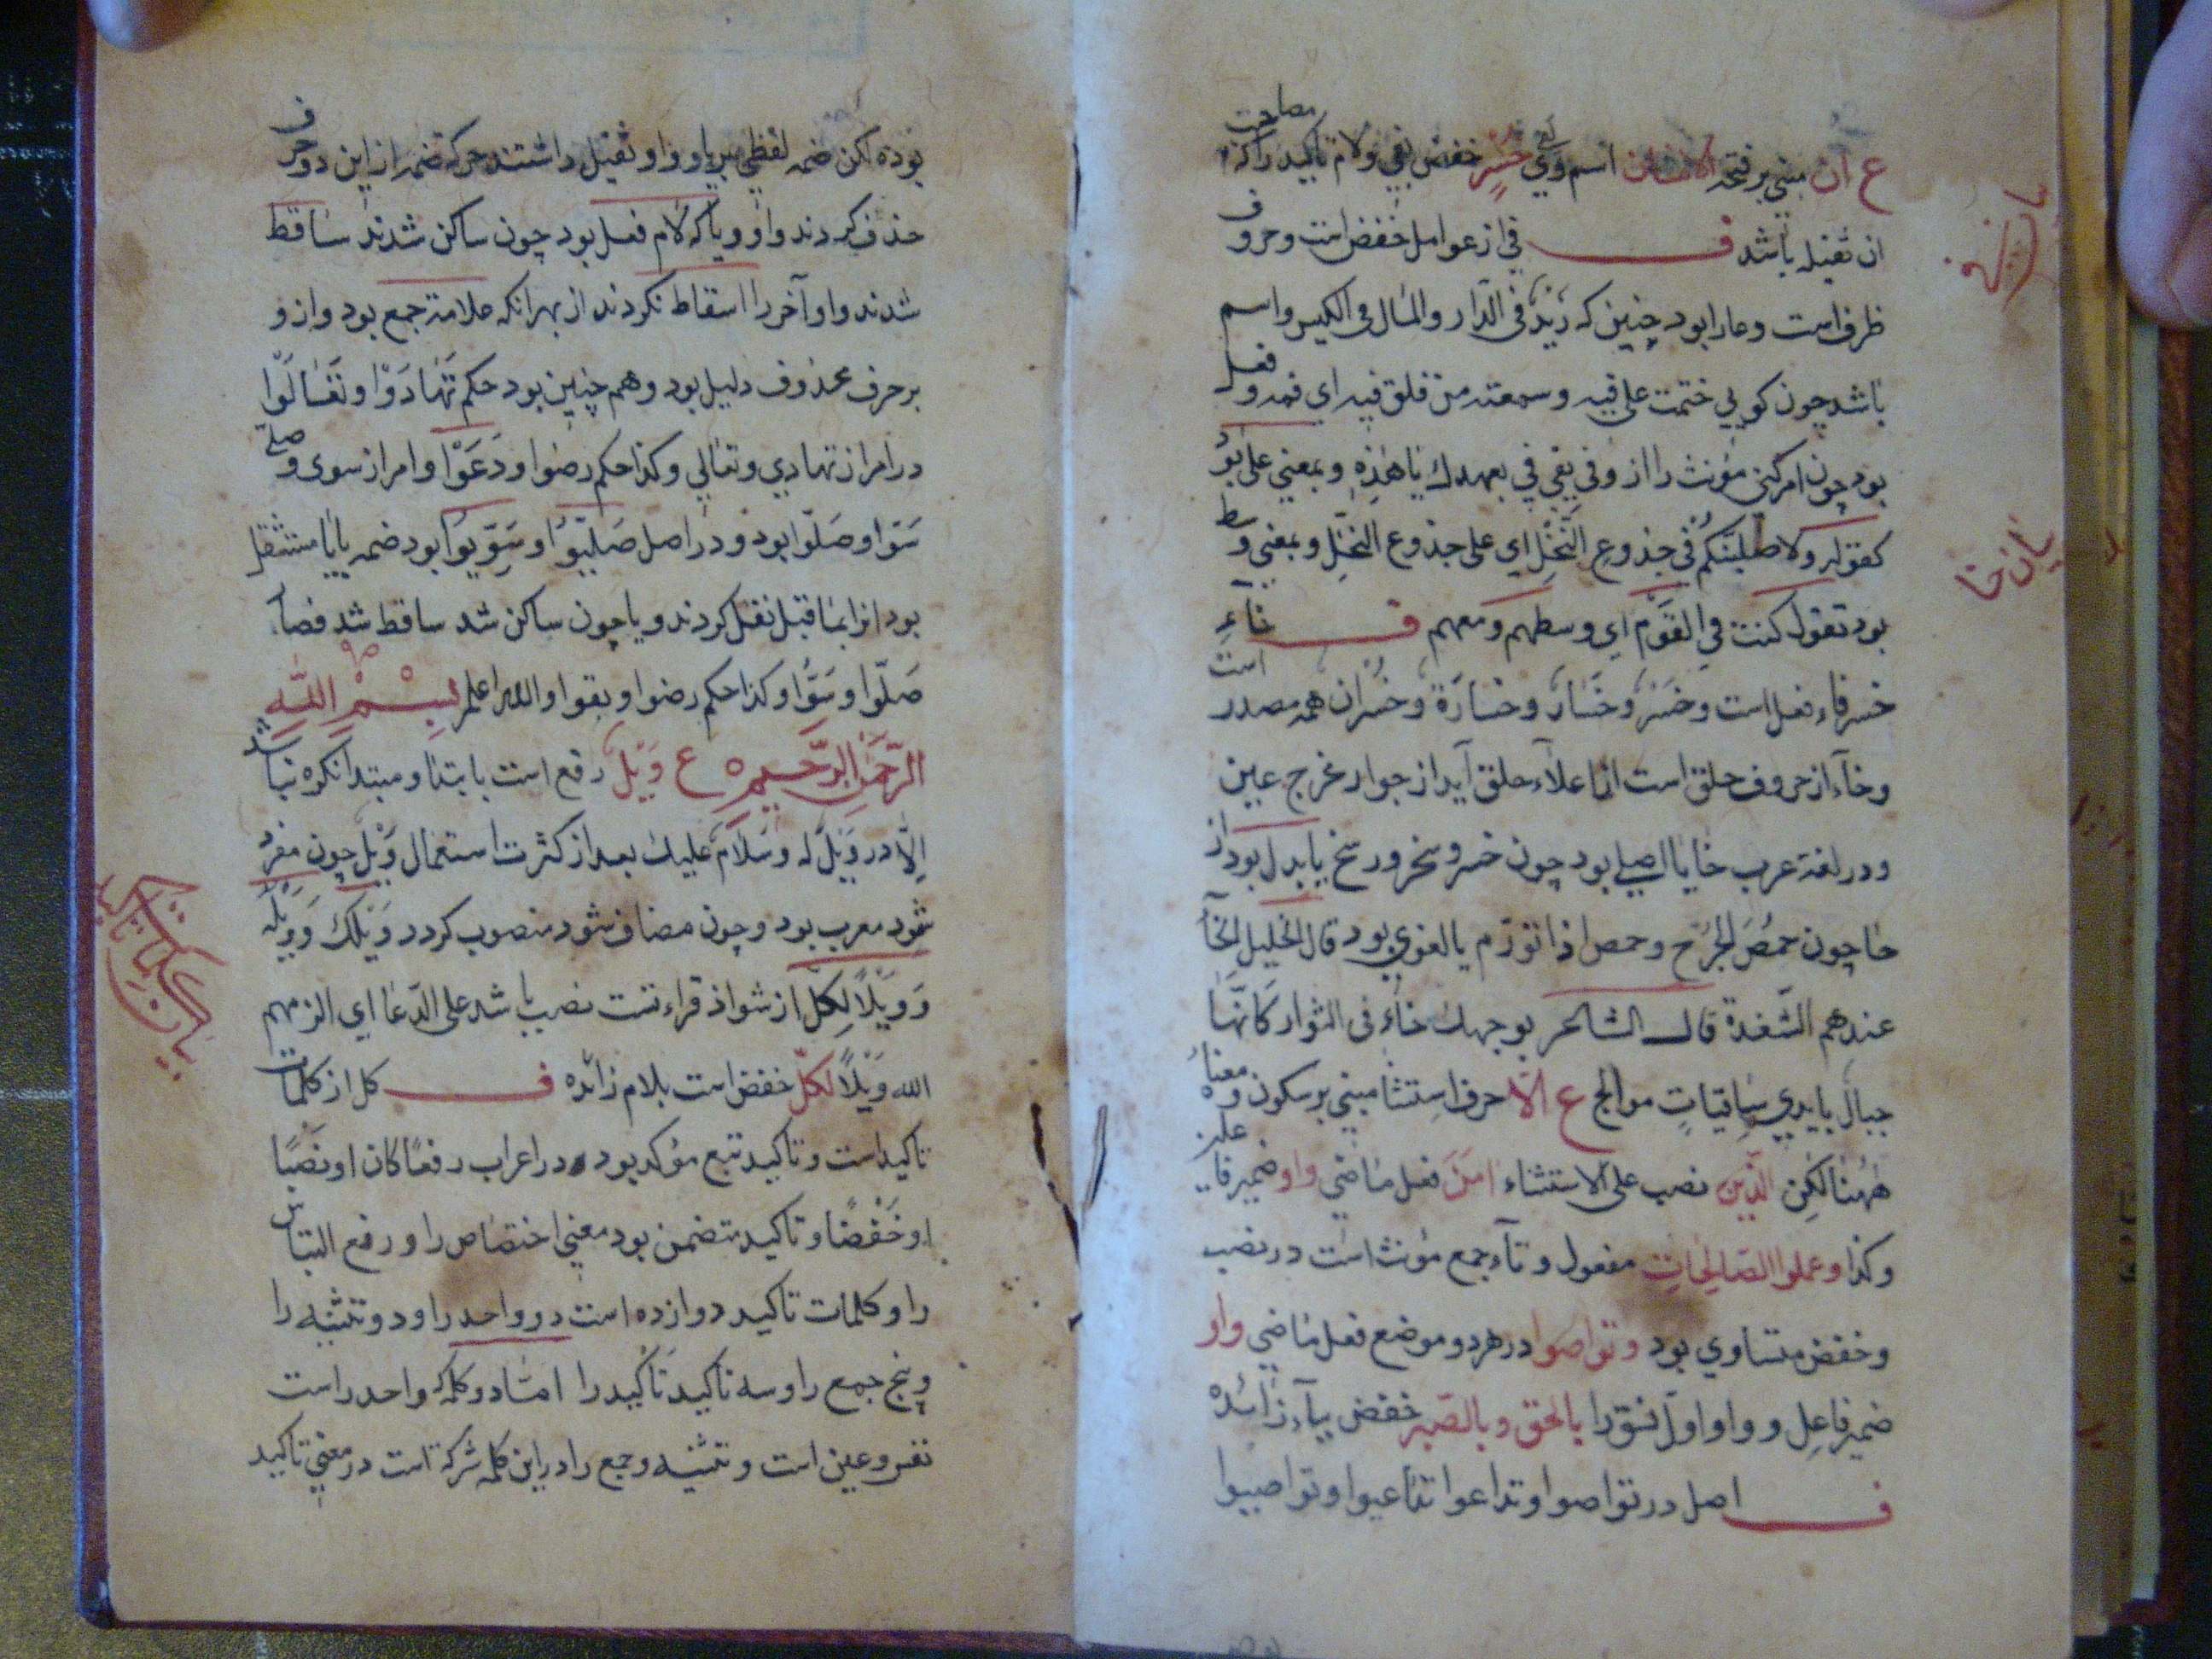 ع ان مبنی بر فتحه الانسان اسم وی لفی خسر خفض بفی ولام تأکید را که مصاحب
ان ثقیله باشد ف فی از عوامل خفض است و حروف
ظرف است وعا را بود چنین که زَیْدٌ فی الدّار والمال فی الکیس و اسم
باشد چون کویی ختمت علی فیه و سمعته من فلق فیه ای فمه و فعل
بود چون امر کنی مؤنث را از وفی یفی فی بعهدك یا هٰذِهِ و بمعنی علی بوَد
کقوله ولاصلبنّکم فی جذوعِ النَّخْلِ ای علی جذوع النخل و بمعنی وسط
بود تقول کنت فی القَوْم ای وسطهم ومعهم ف خاءِ
خسر فاء فعل است وخُسْر وخَسَار وخسارَة وخُسْران همه مصدر است
وخاء از حروف حلق است از اعلاء حلق آید از جوار مخرج عین
و در لغة عرب خا یا اصلی بود چون خسر و سخر و رسخ یا بدل بود از
حا چون خمصُ الجُرْح وحمص اذا تورّم یا لغوی بود قال الخلیل الخآ
عندهم الشَّعْرة قال الشاعر بوجهك خاء فی الثوار کَانَّهَا
جبال بایدی ساقیاتِ موالج ع الّا حرف استثنا مبنی بر سکون و معناه
هٰهُنا لکن الّذین نصب علی الاستثناء امن فعل ماضی واو ضمیر فاعل
وکذا وعملوا الصّالِحَاتِ مفعول و تآء جمع مؤنث است در نصب
و خفض متساوی بود وتواصوا در هر دو موضع فعل ماضی واو
ضمیر فاعل و واو اوّل نسق را بالحق وبالصّبر خفض بباء زائده
ف اصل در تواصوا وتداعوا تداعیوا وتواصیوا
یا زینة
بیان خا
بوده لکن ضمه لفظی بر یا و واو ثقیل داشتند حرکه ضمه را از این دو حرف
حذف کردند واو و یا که لام فعل بود چون ساکن شدند ساقط
شدند و او آخر را اسقاط نکردند از بهر انکه علامة جمع بود و از و
بر حرف محذوف دلیل بود و هم چنین بود حکم تَهَادَوْا وتَعَالَوْا
در امر از تهادی و تعالی و کذا حکم رضوا و دَعَوْا و امر از سوی و صلی
سَوّوا و صَلّوا بود و در اصل صَلِّیُوْا و سَوِّیُوْا بود ضمه بایا مستثقل
بود انرا بماقبل نقل کردند و یا چون ساکن شد ساقط شد فصار
صَلّوا وسَوُّوا وکذا حکم رضوا وبقوا والله اعلم بِسْمِ اللّهِ
الرَّحْمٰنِ الرَّحِیمِ ع وَیْلٌ رفع است بابتدا و مبتدا نکره نباشد
اِلّا در وَیْلٌ له وسَلَامٌ علیك بعد از کثرت استعمال وَیْل چون مفرد
شود معرب بود و چون مضاف شود منصوب کردد وَیْلَك و وَیْلَه
وَ وَیْلًا لِکُلِّ از شواذ قراءتت نصب باشد علی الدّعا ای الزمهم
الله وَیْلًا لکلّ خفض است بلام زائده ف کل از کلمات
تاکید است و تاکید تبع مؤکد بود در اعراب رفعًا کان او نصْبًا
او خَفْضًا و تاکید متضمن بود معنی اختصاص را و رفع التباس
را و کلمات تاکید دوازده است دو واحد را و دو تثنیه را
و پنج جمع را و سه تاکید تاکید را امّا دو کلمه که واحد راست
نفس و عین است و تثنیه و جمع را در این کلمه شرکة است در معنی تاکید
بیان کلمات تاکید